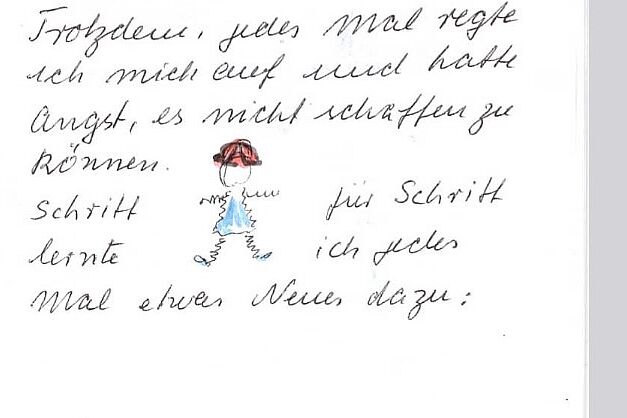 Trotzdem, jedes Mal regte
ich mich auf und hatte
Angst, es nicht schaffen zu
können.
Schritt für Schritt
lernte ich jedes
Mal etwas Neues dazu: